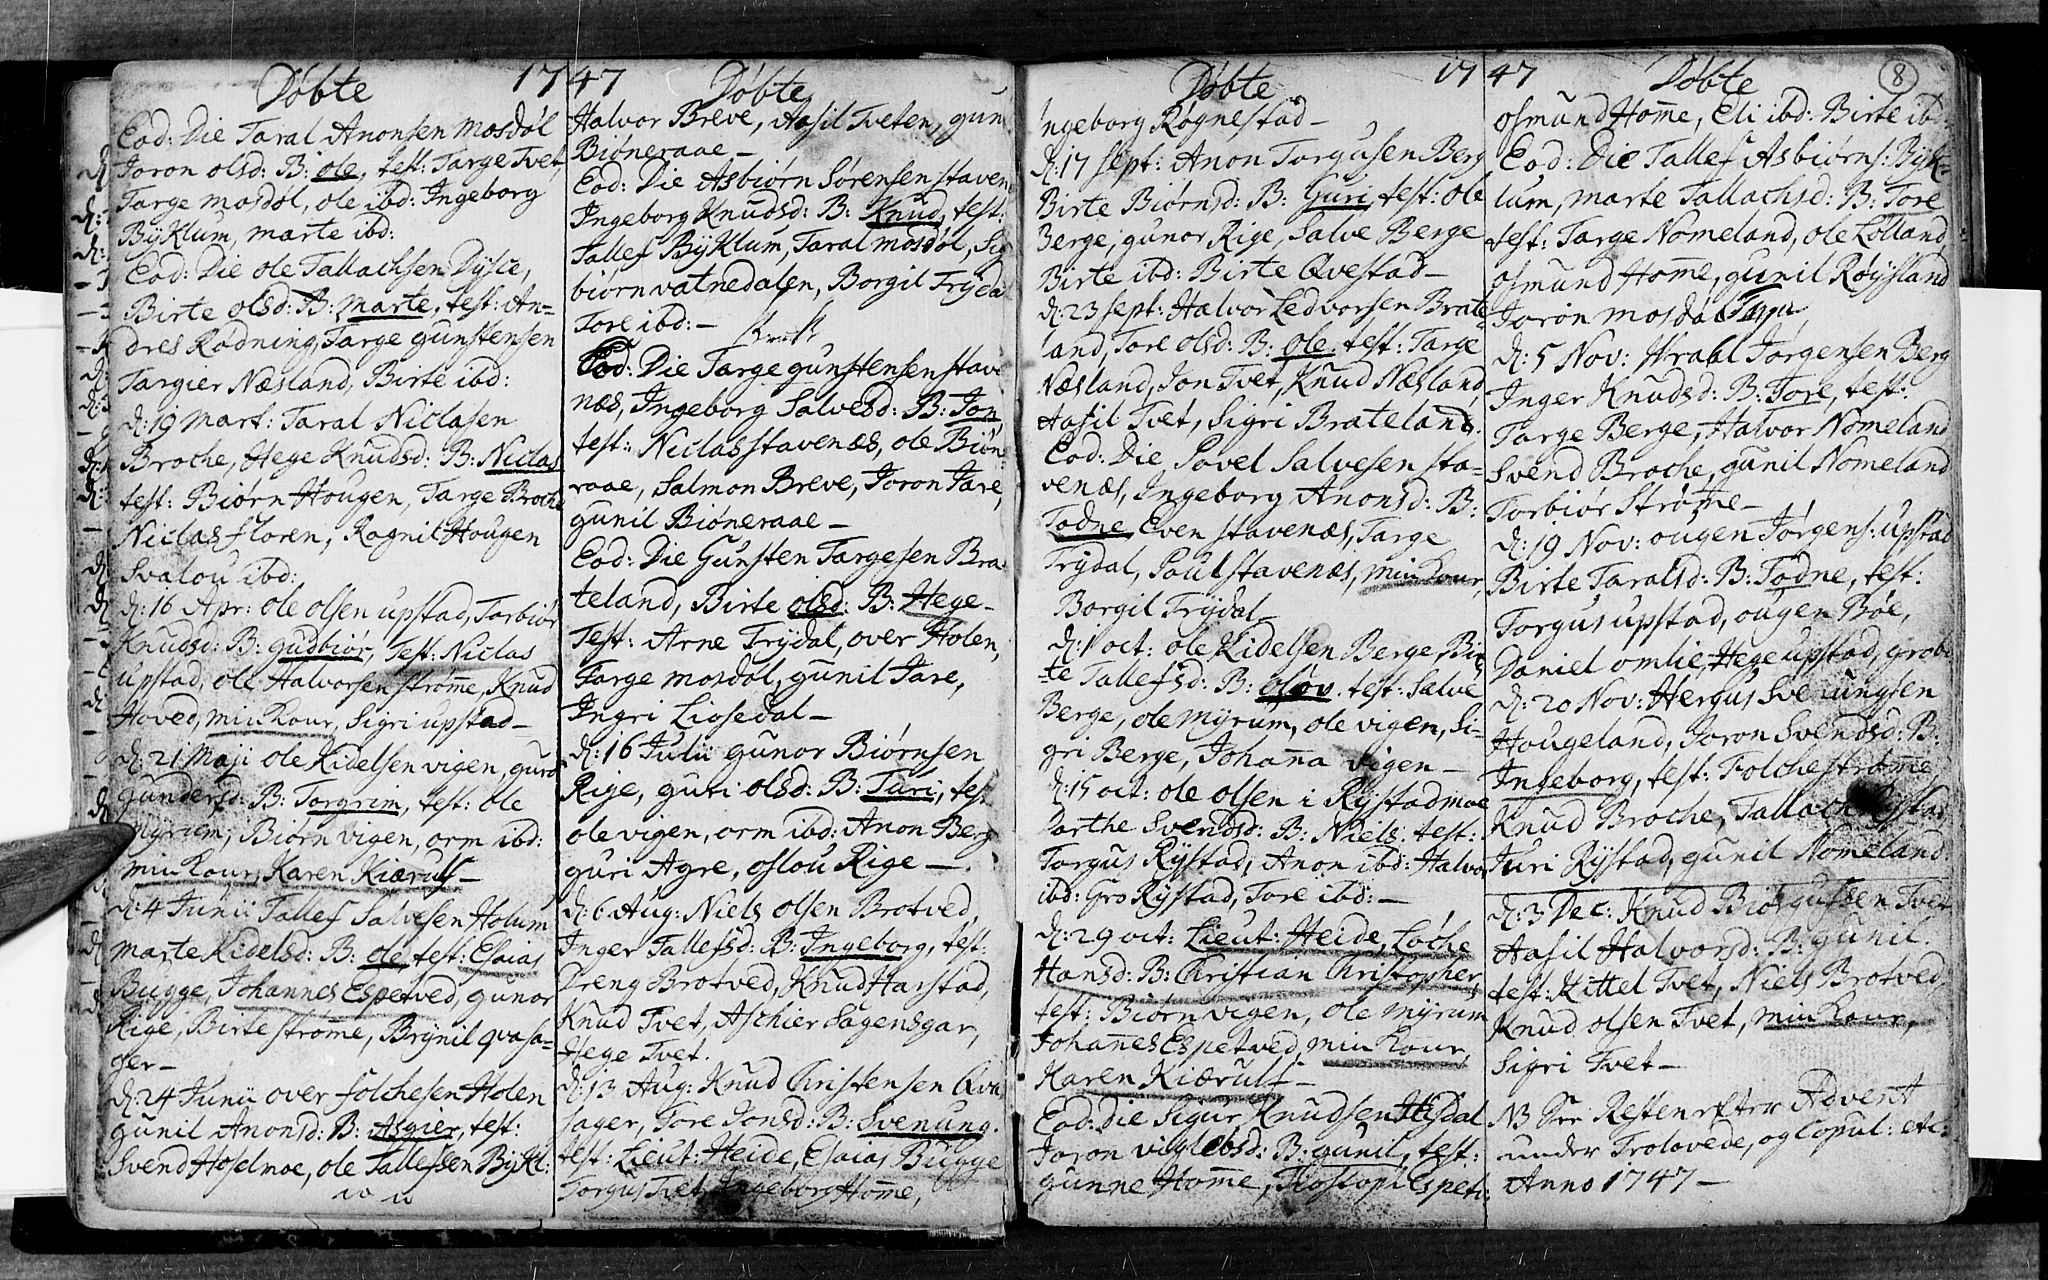 Døbte 1747 Døbte
Eod: Die Taral Anonsen Mosdøl
Joron olsd: B: ole, test: Targe Tvet,
Targe mosdøl, ole ibd: Ingeborg
Bÿklum, marte ibd:
Eod: Die ole Tallachsen Dÿsce,
Birte olsd: B: marte, test: An-
dres Rødning, Targe gunstensen
Targier Næsland, Birte ibd:
d: 19 Mart: Taral Niclasen
Broche, Hege Knudsd: B: Niclas
test: Biørn Hougen, Targe Broche
Niclas floren, Ragnil Hougen
Svalou ibd:
d: 16 Apr: ole olsen upstad, Torbiør
Knudsd: B: gudbiør, Test: Niclas
upstad, ole Halvorsen strøme, Knud
Hoved, min Kour, Sigri upstad-
d: 21 Maji ole Kidelsen vigen, guro
gundersd: B: Torgrim, test: ole
Mÿrum, Biørn vigen, orm ibd:
min Kour, Karen Kiærulf-
d: 4 Junii Tallef Salvesen Holum
marte Kidelsd: B: ole, test: Esaias
Bugge, Johannes Espetved, gunor
Rige, Birte strøme, Brÿnil qvasa-
ger-
d: 24 Junii over folchesen Holen
gunil Anonsd: B: Asgier, test:
Svend Hoselmoe, ole Tallefsen Bÿkl:
Halvor Breve, Aasil Tveten, gun
Biøneraae-
Eod: Die Asbiørn Sørensen staven
Ingeborg Knudsd: B: Knud, test:
Tallef Bÿklum, Taral mosdøl, Sig
biørn vatnedalen, Borgil Trÿdal
Tore ibd:-
Eod: Die Targe gunstensen stave
næs, Ingeborg Salvesd: B: Jon
test: Niclas stavenæs, ole Biøn
raae, Salmon Breve, Joron Jare,
gunil Biøneraae-
Eod: Die Gunsten Targesen Bra
teland, Birte olsd: B: Hege-
Test: Arne Trÿdal, over Holen,
Targe mosdøl, gunil Jare,
Ingri Liosedal-
d: 16 Julii gunor Biørnsen
Rige, guri olsd: B: Turi, test
ole vigen, orm ibd: Anon Berg
guri Agre, oslou Rige-
d: 6 Aug: Niels olsen Brotved,
Inger Tallefsd: B: Ingeborg, test:
Dreng Brotved, Knud Harstad,
Knud Tvet, Aschier Sagensgar,
Hege Tvet.
d: 13 Aug: Knud Christensen Qva
sager, Tore Jonsd: B: Svenung.
test: Lieut: Heide, Esaias Bugge
Torgus Tvet, Ingeborg Home,
Døbte 1747 Døbte 8
Ingeborg Røgnestad-
d: 17 sept: Anon Torgusen Berg
Birte Biørnsd: B: Guri, test: ole
Berge, gunor Rige, Salve Berge
Birte ibd: Birte Qvestad-
d: 23 sept: Halvor Ledvorsen Brate-
land, Tore olsd: B: ole, test: Targe
Næsland, Jon Tvet, Knud Næsland,
Aasil Tvet, Sigri Brateland.
Eod: Die, Povel Salvesen sta-
venæs, Ingeborg Anonsd: B:
Todne, Even stavenæs, Targe
Trÿdal, Poul stavenæs, min Kour,
Borgil Trÿdal-
d: 1 oct: ole Kidelsen Berge, Bir-
te Tallefsd: B: olov, test: Salve
Berge, ole Mÿrum, ole vigen, Si-
gri Berge, Johana vigen-
d: 15 oct: ole olsen i Rÿstadmoe
Dorthe Svendsd: B: Niels, test:
Torgus Rÿstad, Anon ibd: Halvor
ibd: Gro Rÿstad, Tore ibd:-
d: 29 oct: Lieut: Heide, Lothe
Hansd: B: Christian Christopher,
test: Biørn vigen, ole Mÿrum
Johannes Espetved, min Kour,
Karen Kiærulf-
Eod: Die Sigur Knudsen Hisdal
Joron viglebsd: B: gunil, test:
gunne Home, Espet:
osmund Home, Eli ibd: Birte ibd:
Eod: Die Tallef Asbiørns: Bÿk-
lum, marte Tallachsd: B: Tore
test: Targe Nomeland, ole Lolland,
osmund Home, gunil Røÿsland
Joron mosdøl
d: 5 Nov: Wrabl Jørgensen Berg
Inger Knudsd: B: Tore, test:
Targe Berge, Halvor Nomeland
Svend Broche, gunil Nomeland
Torbiør Strøme-
d: 19 Nov: ougen Jørgens: upstad
Birte Taralsd: B: Todne, test:
Torgus upstad, ougen Bøe,
Daniel omlie, Hege upstad, gro ibd
d: 20 Nov: Hergus Svenungsen
Hougeland, Joron Svendsd: B:
Ingeborg, test: Folche strøme
Knud Broche, Tallach Rÿstad,
Juri Rÿstad, gunil Nomeland
d: 3 Dec: Knud Biørgufsen Tvet
Aasil Halvorsd: B: gunil.
test: Kittel Tvet, Niels Brotved,
Knud olsen Tvet, min Kour,
Sigri Tvet-
NB See Resten efter Advent
under Trolovede, og Copul: etc:
Anno 1747-